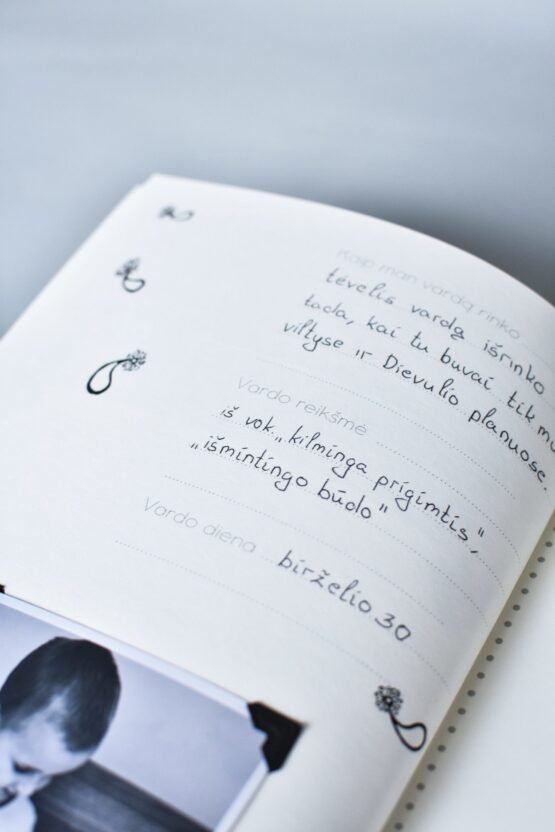 Kaip man vardą rinko
tėvelis vardą išrinko
tada, kai tu buvai tik
viltyse ir Dievulio planuose.
Vardo reikšmė
iš vok. „kilminga prigimtis",
„išmintingo būdo"
Vardo diena birželio 30